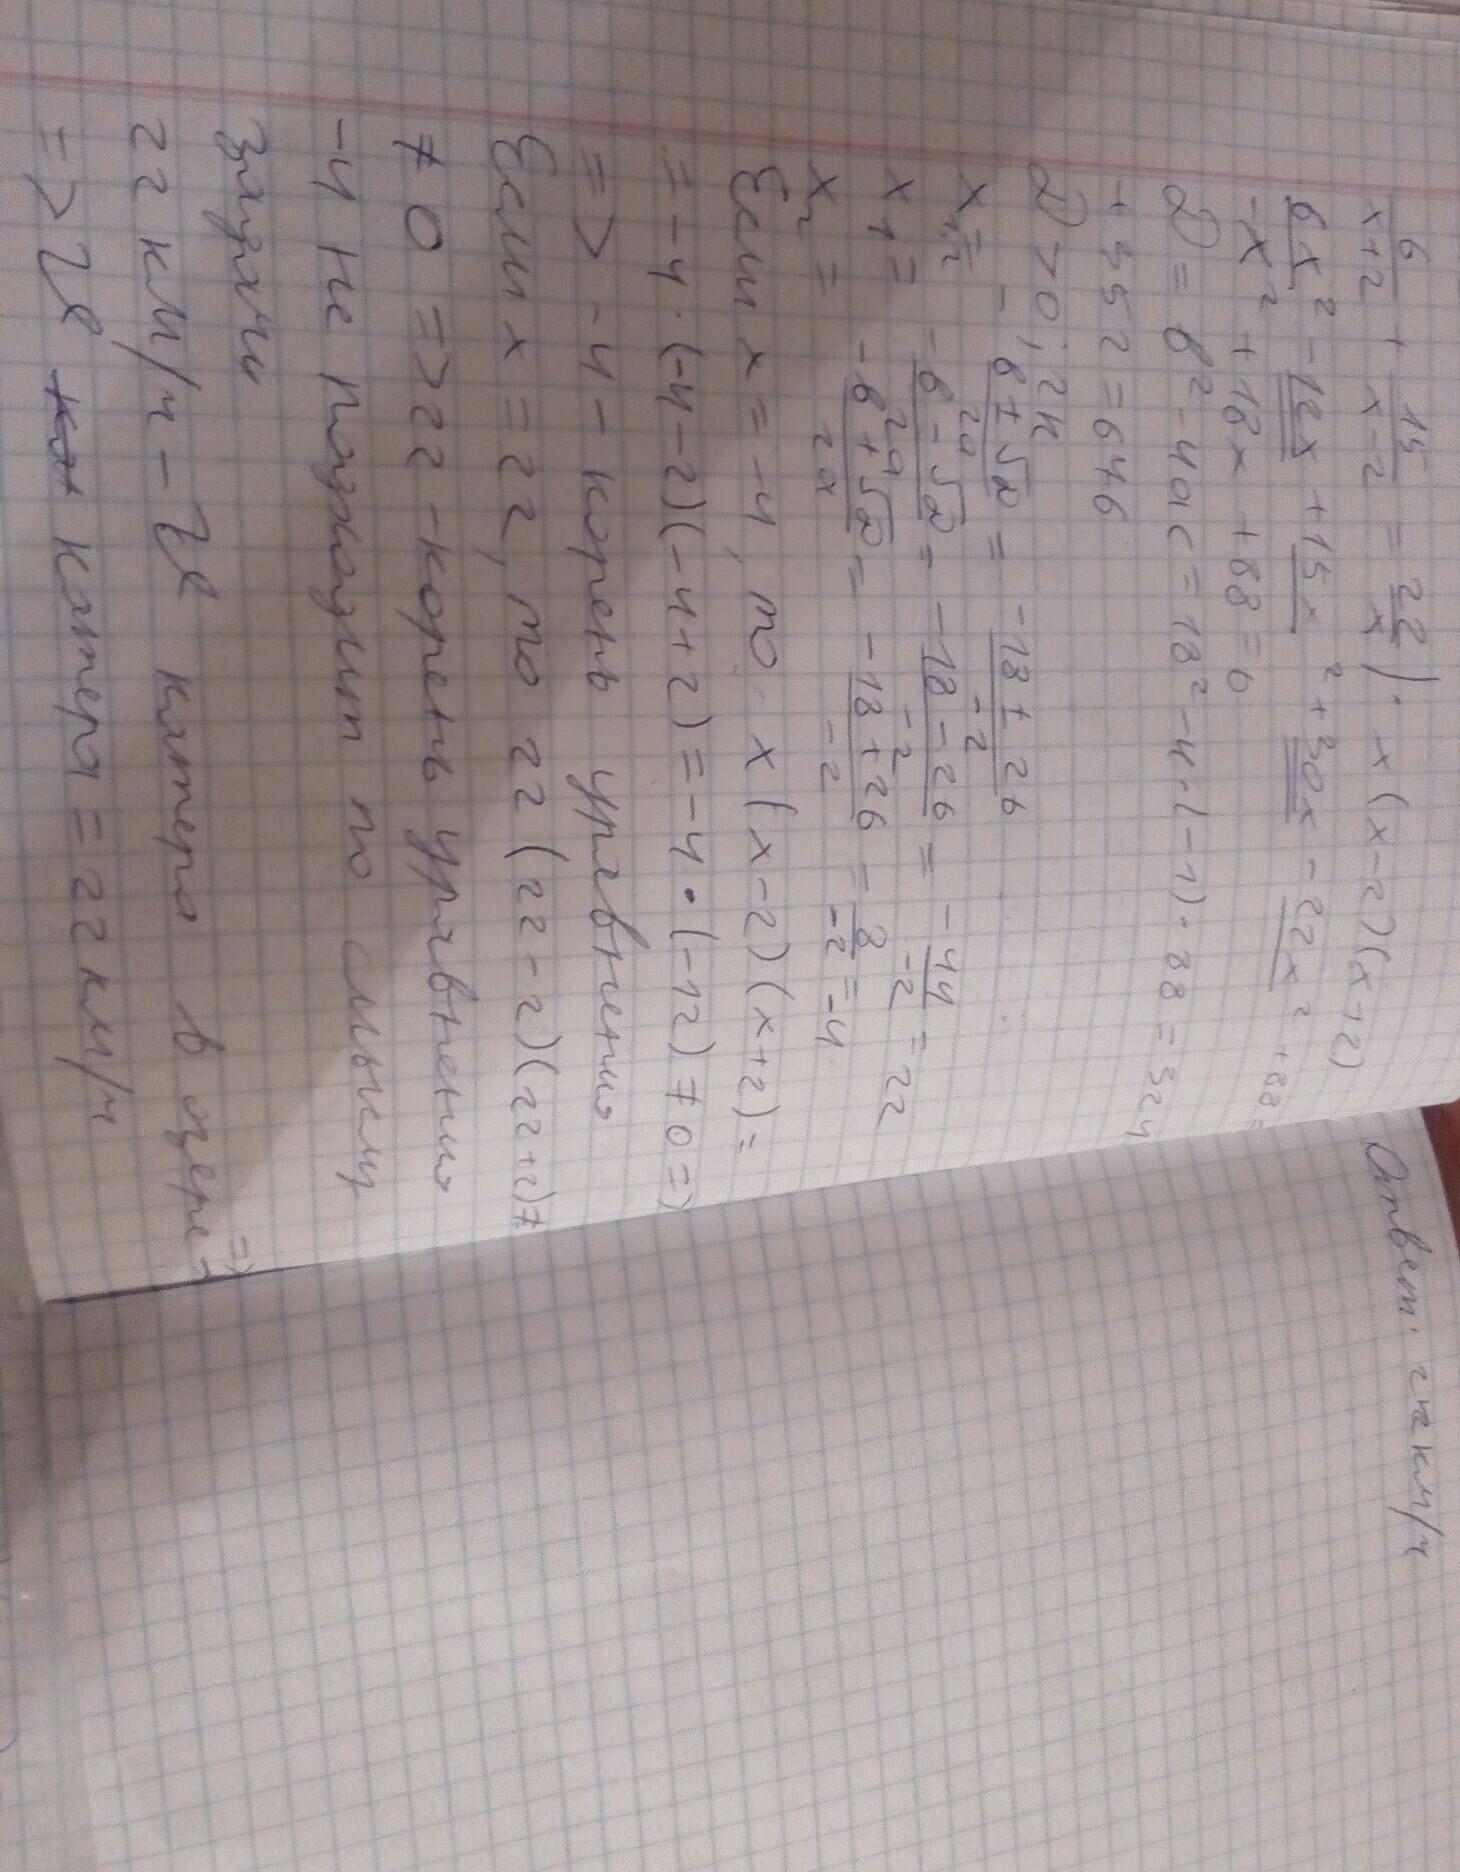 6/(x+2) + 15/(x-2) = 22/x | · x(x-2)(x+2)
6x² - 12x + 15x² + 30x - 22x² + 88 =
-x² + 18x + 88 = 0
D = b² - 4ac = 18² - 4·(-1)·88 = 324
+ 352 = 676
D > 0; 2к
x₁,₂ = (-b ± √D)/2a = (-18 ± 26)/-2
x₁ = (-b - √D)/2a = (-18 - 26)/-2 = -44/-2 = 22
x₂ = (-b + √D)/2a = (-18 + 26)/-2 = 8/-2 = -4
Если x = -4, то x(x-2)(x+2) =
= -4·(-4-2)(-4+2) = -4·(-12) ≠ 0 =>
=> -4 - корень уравнения
Если x = 22, то 22(22-2)(22+2) ≠
≠ 0 => 22 - корень уравнения
-4 не подходит по смыслу
задачи
22 км/ч - V катера в озере =>
=> V катера = 22 км/ч
Ответ: 22 км/ч